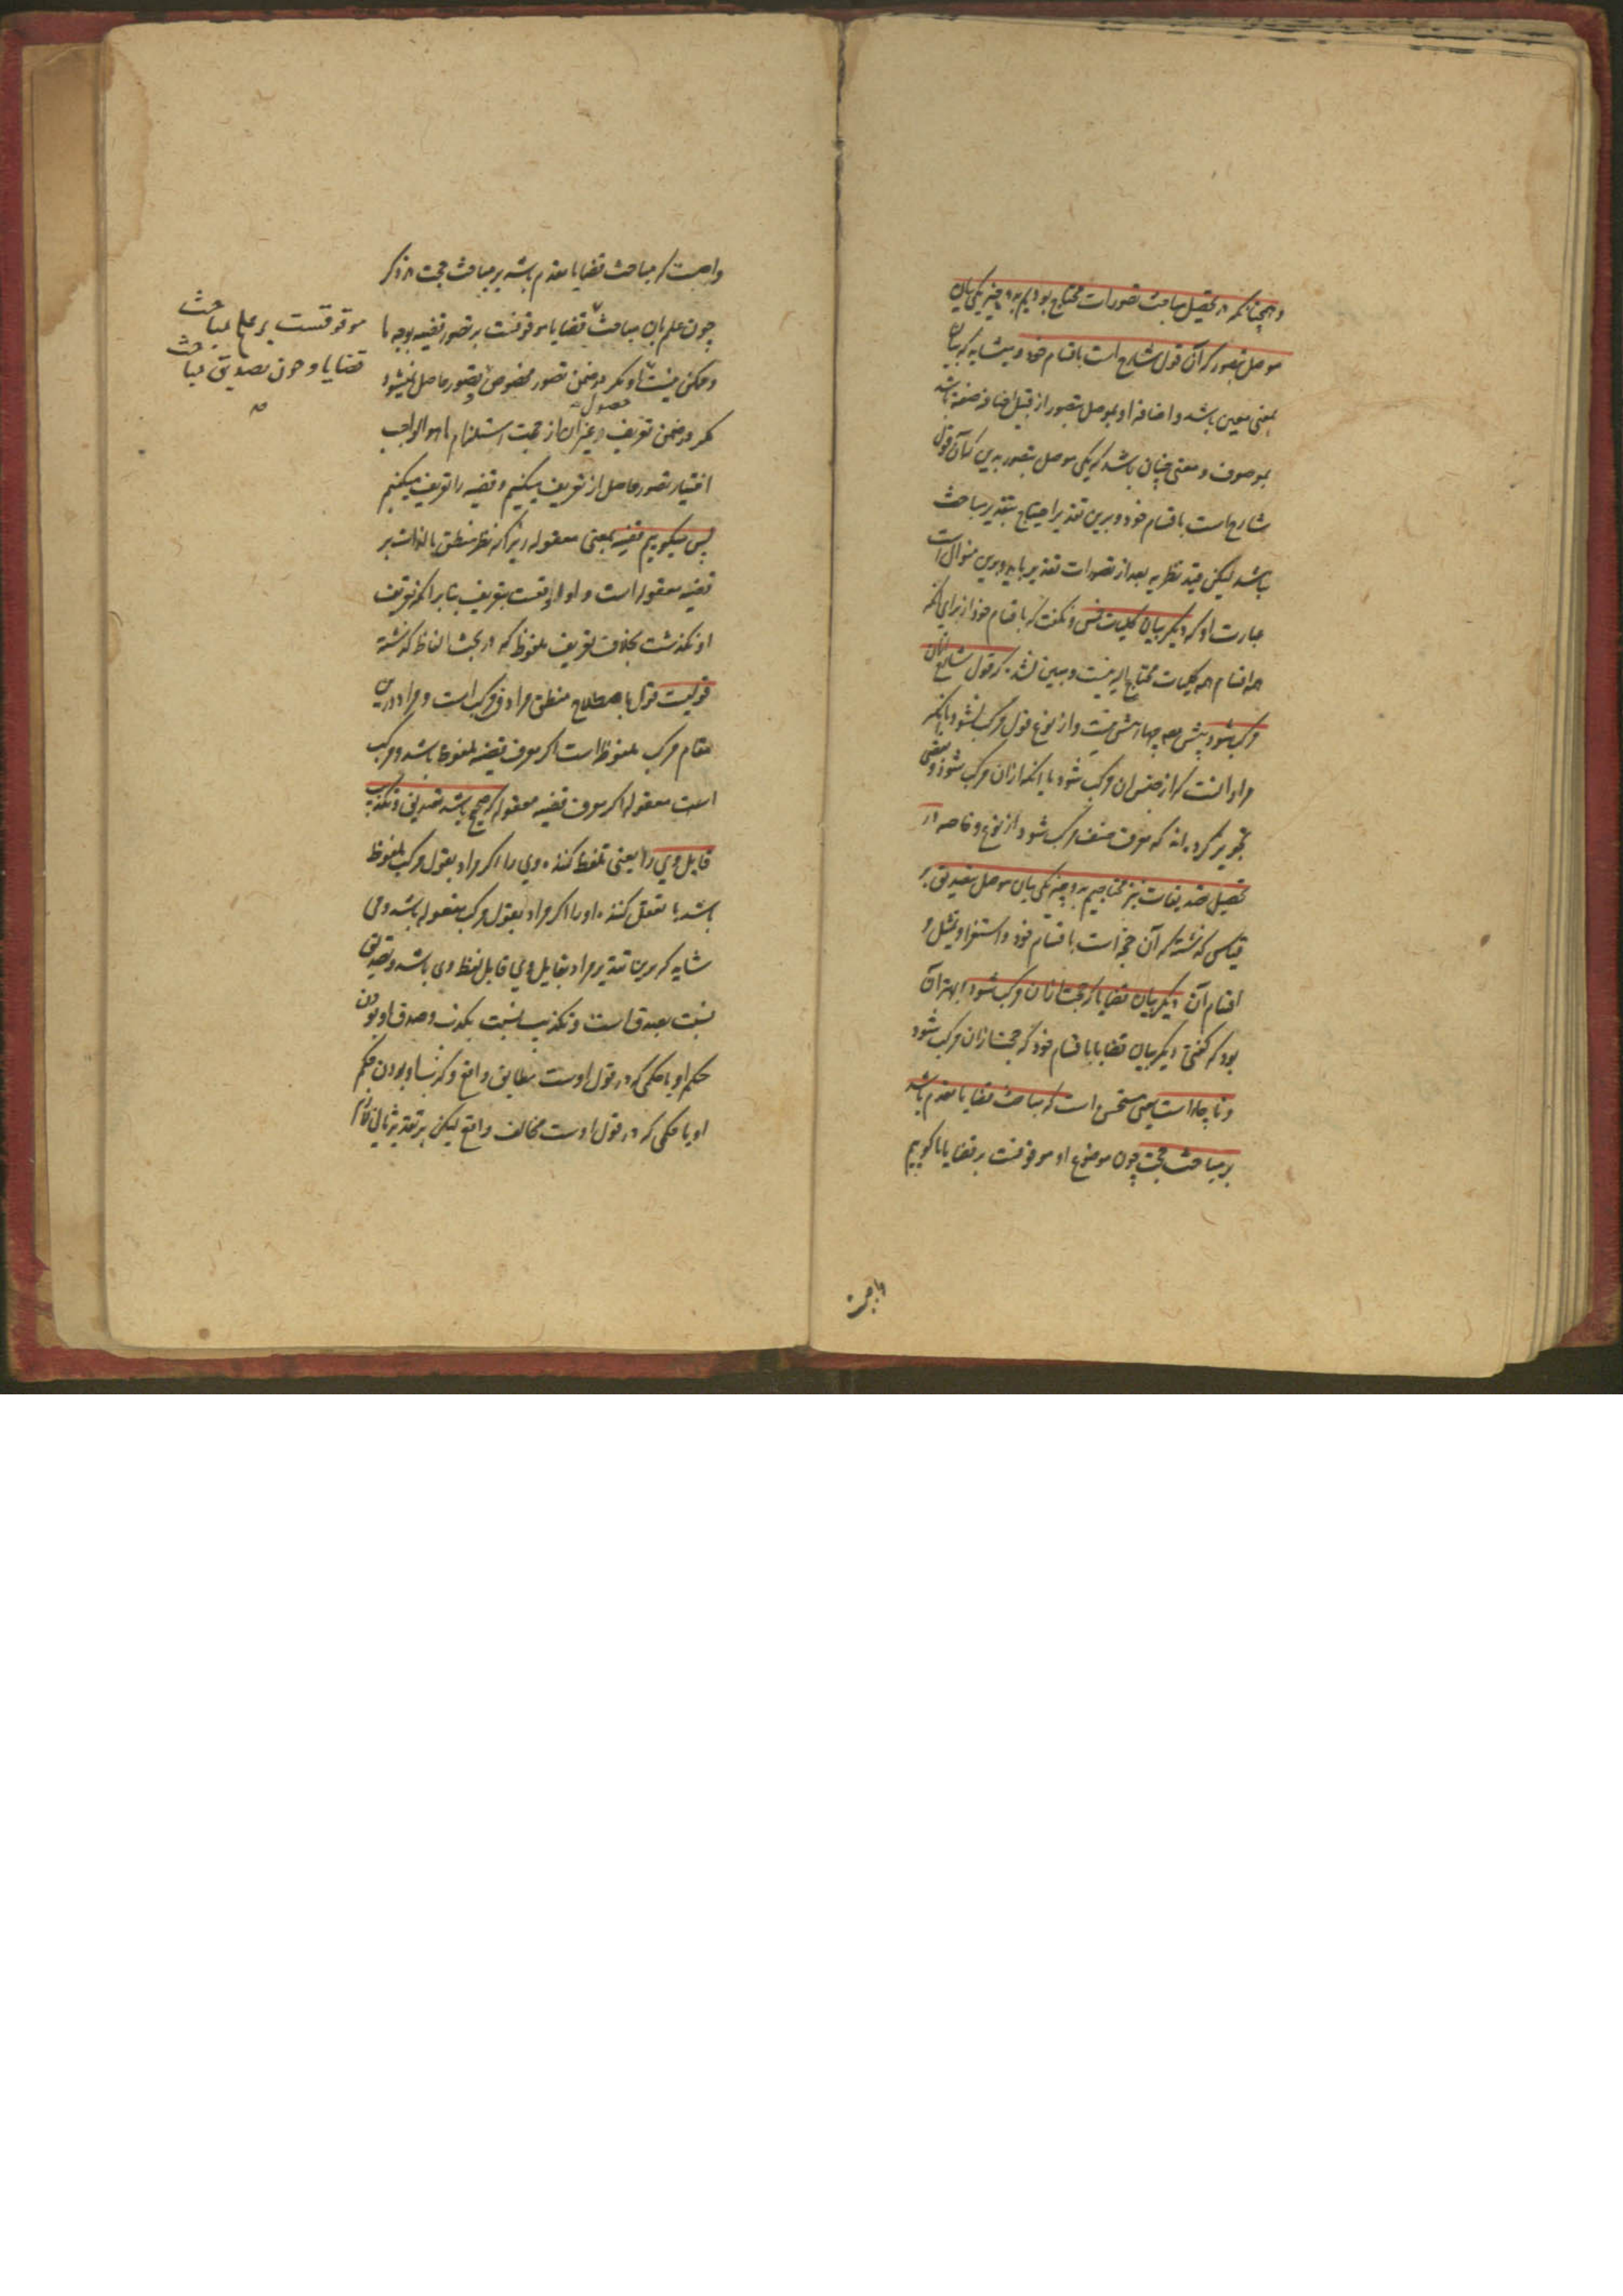 و همچنانکه در تحصیل مباحث تصورات محتاج بودیم به دو چیز یکی بیان
موصل بتصور که آن قول شارح است باقسام خود و میشاید که بیان
بمعنی معین باشد و اضافه او بموصل بتصور از قبیل اضافه صفة باشد
بموصوف و معنی چنان باشد که یکی موصل بتصور مبین که آن قول
شارح است باقسام خود و برین تقدیر احتیاج بتقدیر مباحث
باشد لیکن قید نظریه بعد از تصورات تقدیر باید و برین منوال است
عبارت او که دیگر بیان کلیات خمس و نگفت که باقسام خود از برای آنکه
همه اقسام همه کلیات محتاج الیه نیست و مبین نشد که قول شارح از آن
مرکب شود پیش همه چهار بیش نیست و از نوع قول مرکب نشود بآنکه
مراد آنست که از جنس آن مرکب شود یا آنکه از آن مرکب شود و بعضی
تجویز کرده اند که معرف صنف مرکب شود از نوع و خاصه در
تحصیل تصدیقات نیز محتاجیم به دو چیز یکی بیان موصل بتصدیق بر
قیاسی که گذشته که آن حجة است باقسام خود و استقرا و تمثیل و
اقسام آن دیگر بیان قضایا که حجت از آن مرکب شود بهتر آن
بود که گفتی دیگر بیان قضایا باقسام خود که حجت از آن مرکب شود
و ناچار است یعنی مستحسن است که مباحث قضایا مقدم باشد
بر مباحث حجت چون موضوع او موقوفست بر قضایا یا گوییم
واجبست که مباحث قضایا مقدم باشد بر مباحث حجت در ذکر
چون علم بآن مباحث قضایا موقوفست بر تصور قضیه بوجه ما
و ممکن نیست او مگر در ضمن تصور مخصوص و تصور حاصل نمیشود
حصول
مگر در ضمن تعریف و غیر آن از جهت استلزام ما هو الواجب
اختیار تصور حاصل از تعریف میکنیم و قضیه را تعریف میکنیم
پس میگوییم قضیه بمعنی معقوله زیرا که نظر منطقی بالذات بر
قضیه معقوله است و او اولی است بتعریف بنا بر آنکه تعریف
او نگذشت بخلاف تعریف ملفوظ که در بحث الفاظ گذشته
قولیست قول باصطلاح منطق مرادف مرکب است و مراد درین
مقام مرکب ملفوظ است اگر معرف قضیه ملفوظه باشد و مرکب
است معقول اگر معرف قضیه معقوله که صحیح باشد تصدیق و تکذیب
قایل وی را یعنی تلفظ کننده وی را اگر مراد بقول مرکب ملفوظ
باشد یا تعقل کننده او را اگر مراد بقول مرکب معقول باشد و می
شاید که برین تقدیر مراد بقایل وی قایل لفظ وی باشد و تصدیق
نسبت بصدق است و تکذیب نسبت بکذب و صدق او بودن
حکم او یا حکمی که در قول اوست مطابق واقع و کذب او بودن حکم
او یا حکمی که در قول اوست مخالف واقع لیکن بر تقدیر ثانی
موقوفست بر علم بمباحث
قضایا و چون تصدیق بمباحث